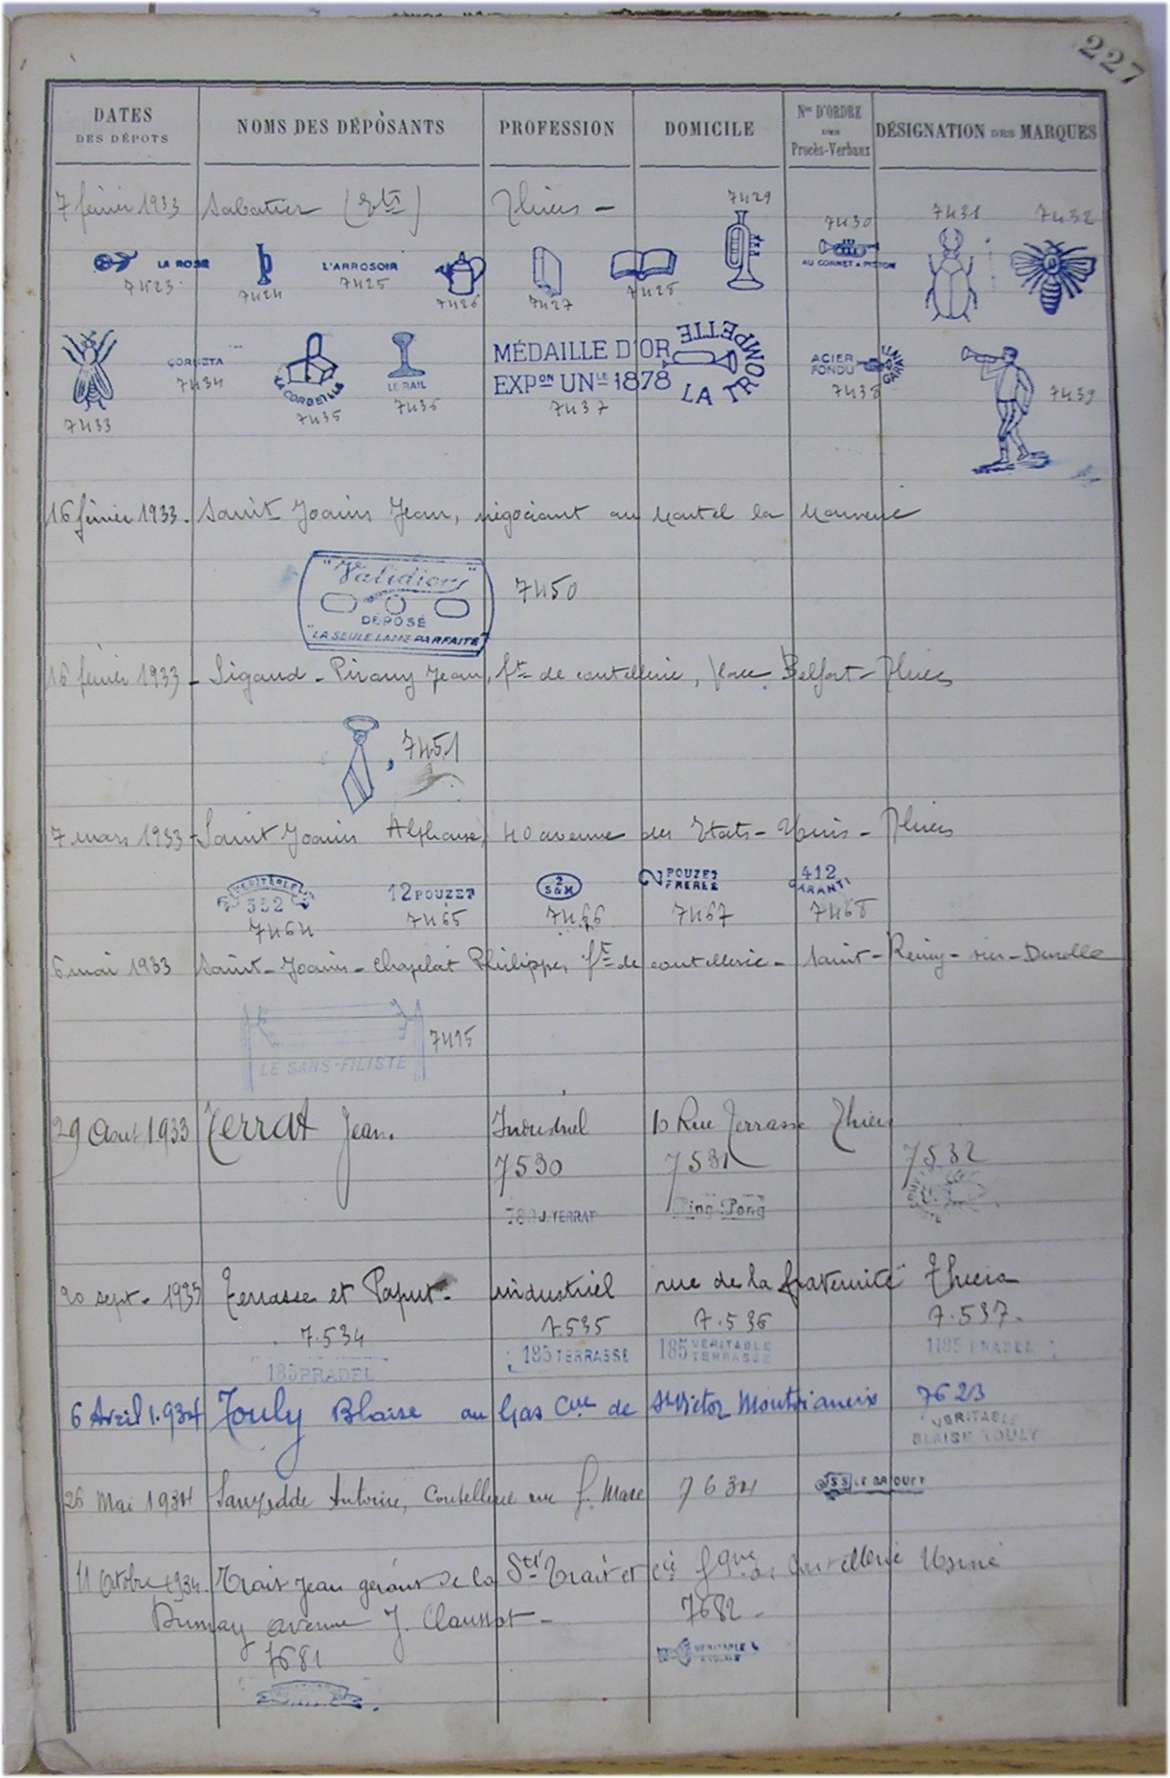 227
DATES DES DÉPOTS NOMS DES DÉPOSANTS PROFESSION DOMICILE Nos D'ORDRE DES Procès-Verbaux DÉSIGNATION DES MARQUES
7 février 1933 Sabatier (Ets) Thiers -
7429 7430 7431 7432
LA ROSE L'ARROSOIR AU CORNET A PISTON
7423 7424 7425 7426 7427 7428
CORNETA LA CORBEILLE LE RAIL MÉDAILLE D'OR LA TROMPETTE ACIER FONDU GARANTI
EXPON UNLE 1878
7433 7434 7435 7436 7437 7438 7439
16 février 1933. Saint Joanis Jean, négociant au
"Validior"
DÉPOSÉ
"LA SEULE LAME PARFAITE"
7450
16 février 1933 - Sigaud - Jean, ft de coutellerie, Place Belfort - Thiers
7451
7 mars 1933 - Saint Joanis Alphonse, 40 avenue des Etats-Unis - Thiers
VERITABLE 332 12 POUZET 2 S&M 2 POUZET FRERES 412 GARANTI
7464 7465 7466 7467 7468
6 mai 1933 Saint-Joanis-Chapelat Philippe, ft de coutellerie - Saint-Remy-sur-Durolle
LE SANS-FILISTE
7495
29 Aout 1933 Terrat Jean. Industriel 10 Rue Terrasse Thiers
7530 7531 7532
J. TERRAT Ping Pong
20 sept. 1933 Terrasse et Paput - industriel rue de la fraternité Thiers
7.534 7.535 7.536 7.537.
185 PRADEL 185 TERRASSE 185 VERITABLE TERRASSE 1185 PRADEL
6 Avril 1.934 Touly Blaise au Gas Cne de St Victor Montvianeix 7623
VERITABLE BLAISE TOULY
26 Mai 1934 Sauzedde Antoine, Coutellerie rue 7634
11 Octobre 1934. Jean gérant de la Sté et Cie Coutellerie Usine
Dumay avenue J. Claussat -
7681 7682 -
VERITABLE